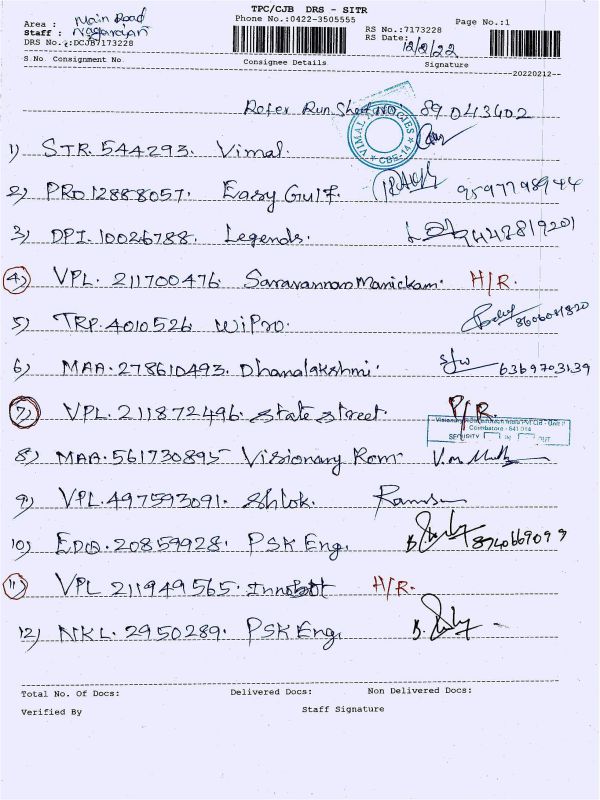 TPC/CJB DRS - SITR
Area : Main Road
Phone No.:0422-3505555
Page No.:1
Staff : Nagarajan
RS No.:7173228
DRS No.:DCJB7173228
RS Date: 12/2/22
S.No. Consignment No. Consignee Details Signature
--20220212--
Refer Run Sheet No: 89043402
VIMAL AGENCIES
* CBE-14 *
1) STR. 544293. Vimal.
2) PRO 12888057. Easy Gulf. 9597798944
3) DPI. 10026788. Legends. 9442819201
4) VPL. 211700476. Saravannan Manickam. H/R.
5) TRP. 4010526 WiPro.
6) MAA. 278610493. Dhanalakshmi. 6369703139
7) VPL. 211872496. State Street. P/R.
Coimbatore - 641 014
SECURITY IN OUT
8) MAA. 561730895 Visionary Rcm
9) VPL. 497593091. Shlok. Ramsu
10) EDQ. 20859928. PSK Eng. 8940669099
11) VPL 211949565. H/R.
12) NKL. 2950289. PSK Eng.
Total No. Of Docs: Delivered Docs: Non Delivered Docs:
Verified By Staff Signature